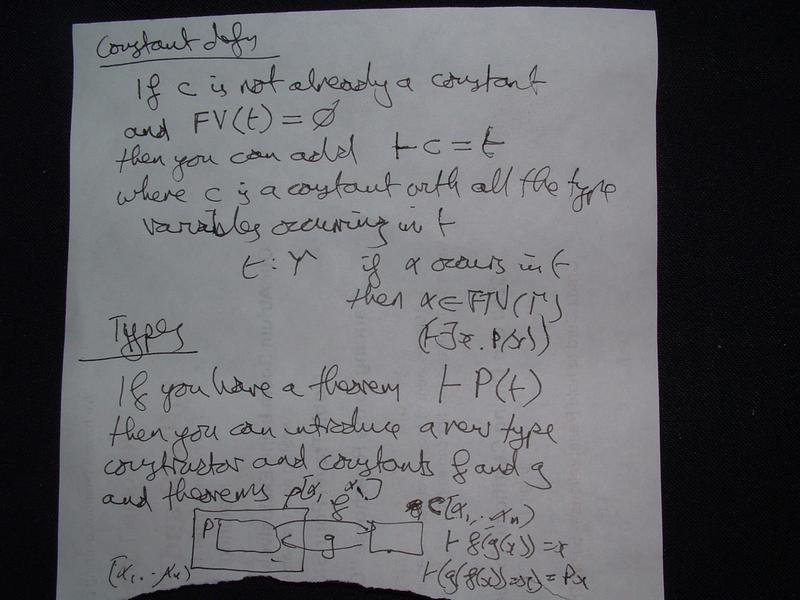 Constant defns
If c is not already a constant
and FV(t) = ∅
then you can add ⊢ c = t
where c is a constant with all the type
variables occurring in t
t : γ if α occurs in t
then α ∈ FTV(Γ)
Types
(⊢∃x. P(x))
If you have a theorem ⊢ P(t)
then you can introduce a new type
constructor and constants f and g
and theorems
f
C[α₁...αₙ)
P
g
⊢ f(g(x)) = x
[α₁...αₙ)
⊢(g(f(x))=x) = Px